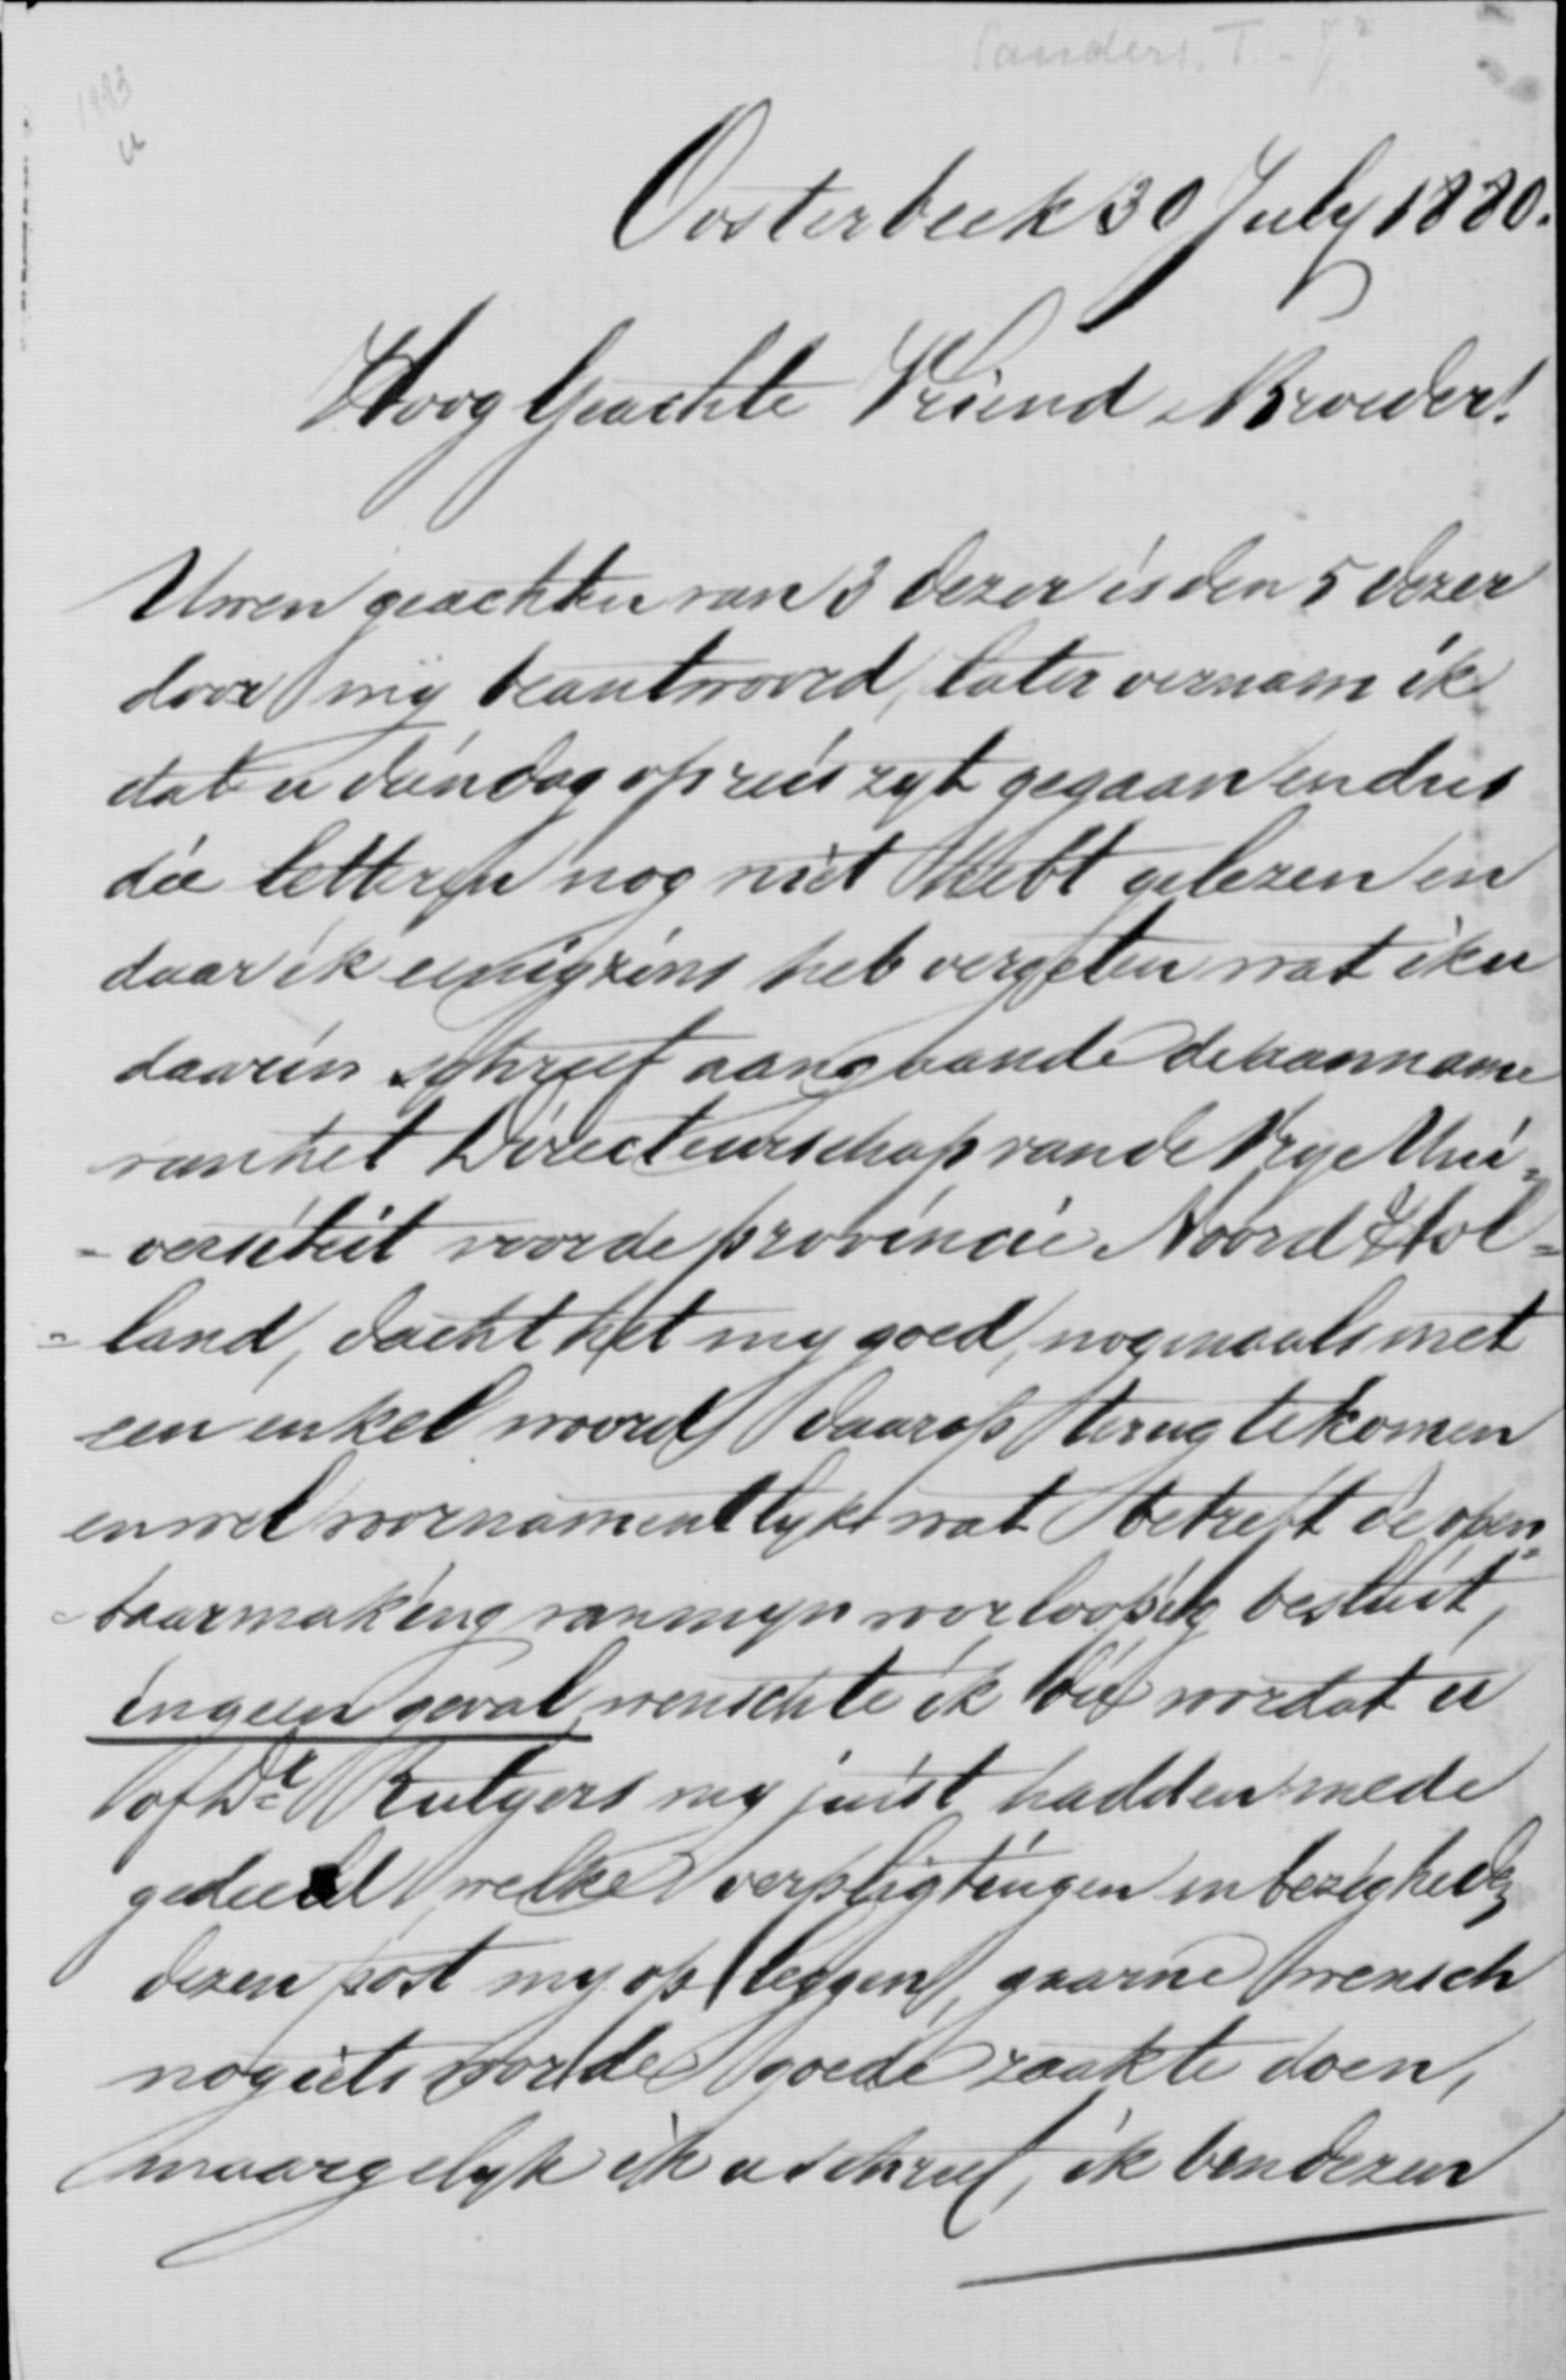 Sanders, T.
1983
Oosterbeek 30 July 1880.
Hoog Geachte Vriend & Broeder!
Uwen geachten van 3 dezer is den 5 dezer
door mÿ beantwoord, later vernam ik
dat u dien dag op reis zyt gegaan en dus
die letteren nog niet hebt gelezen en
daar ik eenigzins heb vergeten wat ik u
daarin schreef aangaande de aanname
van het Directeurschap van de Vrye Uni=
-versiteit voor de provincie Noord Hol=
=land, dacht het my goed, nogmaals met
een enkel woord daarop terug te komen
en wel voornamentlyk wat betreft de open=
=baarmaking van myn voorloopig besluit,
in geen geval wenschte ik die voor dat u
of Dr Rutgers my juist hadden mede
gedeeld welke verpligtingen en bezigheden
dezen post my op leggen, gaarne wensch
nog iets voor de goede zaak te doen,
maar gelyk ik u schreef, ik ben dezen